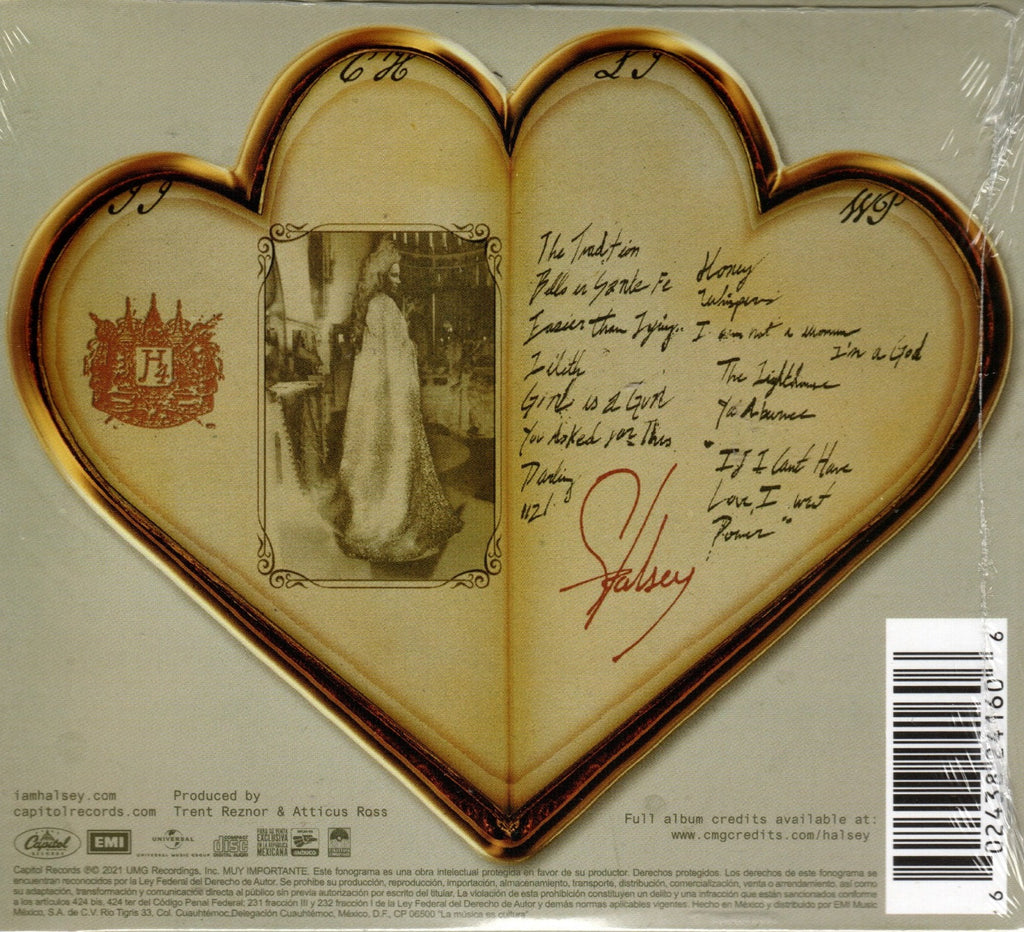 CH
LJ
JJ
WP
H4
The Tradition
Bells in Sante Fe
Easier than Lying..
Lilith
Girl is a Gun
You Asked for This
Darling
1121
Honey
Whispers
I am not a woman
I'm a God
The Lighthouse
Ya'Aburnee
"If I Cant Have
Love, I want
Power"
Halsey
iamhalsey.com
capitolrecords.com
Produced by
Trent Reznor & Atticus Ross
Full album credits available at:
www.cmgcredits.com/halsey
Capitol
RECORDS
EMI
UNIVERSAL
UNIVERSAL MUSIC GROUP
COMPACT
disc
DIGITAL AUDIO
PARA SU VENTA
EXCLUSIVA
EN LA REPUBLICA
MEXICANA
6 02438 24160 6
Capitol Records ℗© 2021 UMG Recordings, Inc. MUY IMPORTANTE. Este fonograma es una obra intelectual protegida en favor de su productor. Derechos protegidos. Los derechos de este fonograma se
encuentran reconocidos por la Ley Federal del Derecho de Autor. Se prohibe su producción, reproducción, importación, almacenamiento, transporte, distribución, comercialización, venta o arrendamiento, así como
su adaptación, transformación y comunicación directa al público sin previa autorización por escrito del titular. La violación de esta prohibición constituyen un delito y una infracción que están sancionados conforme
a los artículos 424 bis. 424 ter del Código Penal Federal; 231 fracción III y 232 fracción I de la Ley Federal del Derecho de Autor y demás normas aplicables vigentes. Hecho en México y distribuido por EMI Music
México, S.A. de C.V. Rio Tigris 33, Col. Cuauhtémoc,Delegación Cuauhtémoc, México, D.F., CP 06500 "La música es cultura"